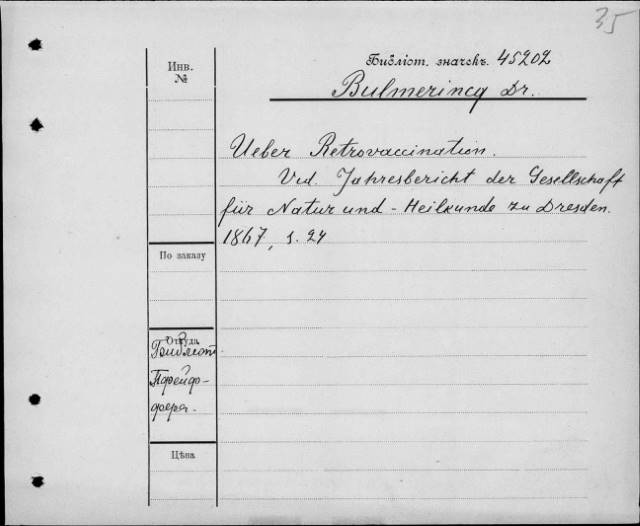 35
Инв.
№
Библіот. значекъ. 45202
Bulmerincq Dr.
Ueber Retrovaccination.
Vid. Jahresbericht der Gesellschaft
für Natur und - Heilkunde zu Dresden.
1867, S. 24
По заказу
Откуда
Библіот.
Пфейф-
фера.
Цѣна